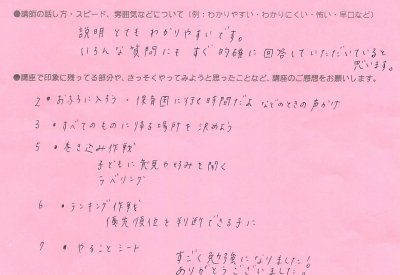 ●講師の話し方・スピード、雰囲気などについて（例：わかりやすい・わかりにくい・怖い・早口など）
説明とてもわかりやすいです。
いろんな質問にもすぐ的確に回答していただいていると
思います。
●講座で印象に残ってる部分や、さっそくやってみようと思ったことなど、講座のご感想をお願いします。
2 ・おふろに入ろう・保育園に行く時間だよ などのときの声かけ
3 ・すべてのものに帰る場所を決めよう
5 ・巻き込み作戦
子どもに意見や好みを聞く
ラベリング
6 ・ランキング作戦
優先順位を判断できる子に
7 ・やることシート
すごく勉強になりました！
ありがとうございました！